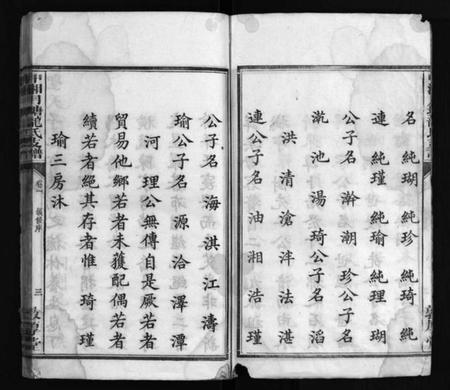 名 純瑚 純珍 純琦 純
連 純瑾 純瑜 純理 瑚
公子名 瀚 潮 珍公子名
沘 池 湯 琦公子名 滔
洪 清 滄 泮 法 湛
連公子名 油 湘 浩 瑾
公子名 海 淇 江 濤
瑜公子名 源 洽 澤 潭
河 理公無傳自是厥若者
貿易他鄉若者未獲配偶若者
續若者絕其存者惟 琦 瑾
瑜三房沐
三